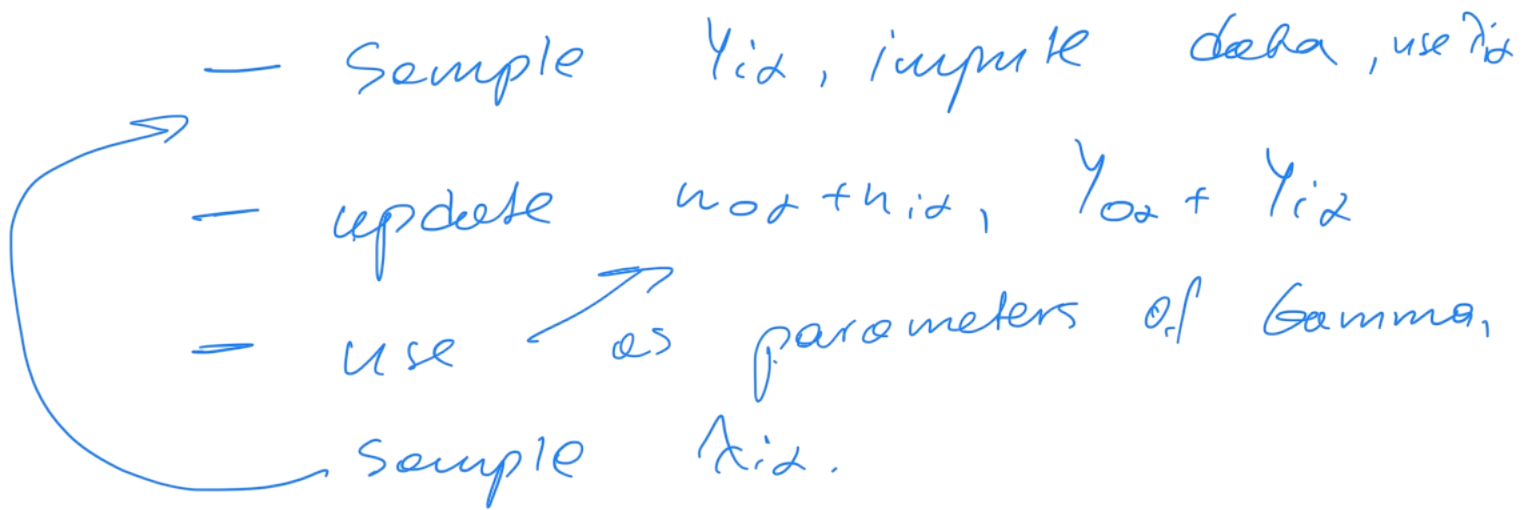 – Sample Yiα, impute data, use λiα
– update noα + niα, Yoα + Yiα
– use ↗ as parameters of Gamma,
sample λiα.